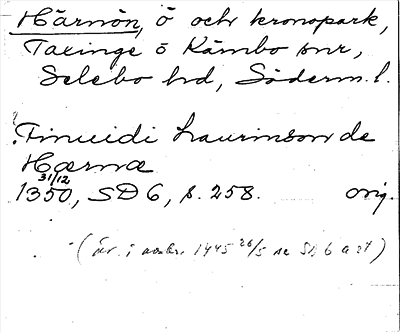 Härnön, ö och kronopark,
Taxinge o Kärnbo snr,
Selebo hd, Söderm. l.
Finuidi Laurinson de
Hærnæ
31/12
1350, SD 6, s. 258. orig.
(i avskr. 1445 26/5 SD 6 a 24)